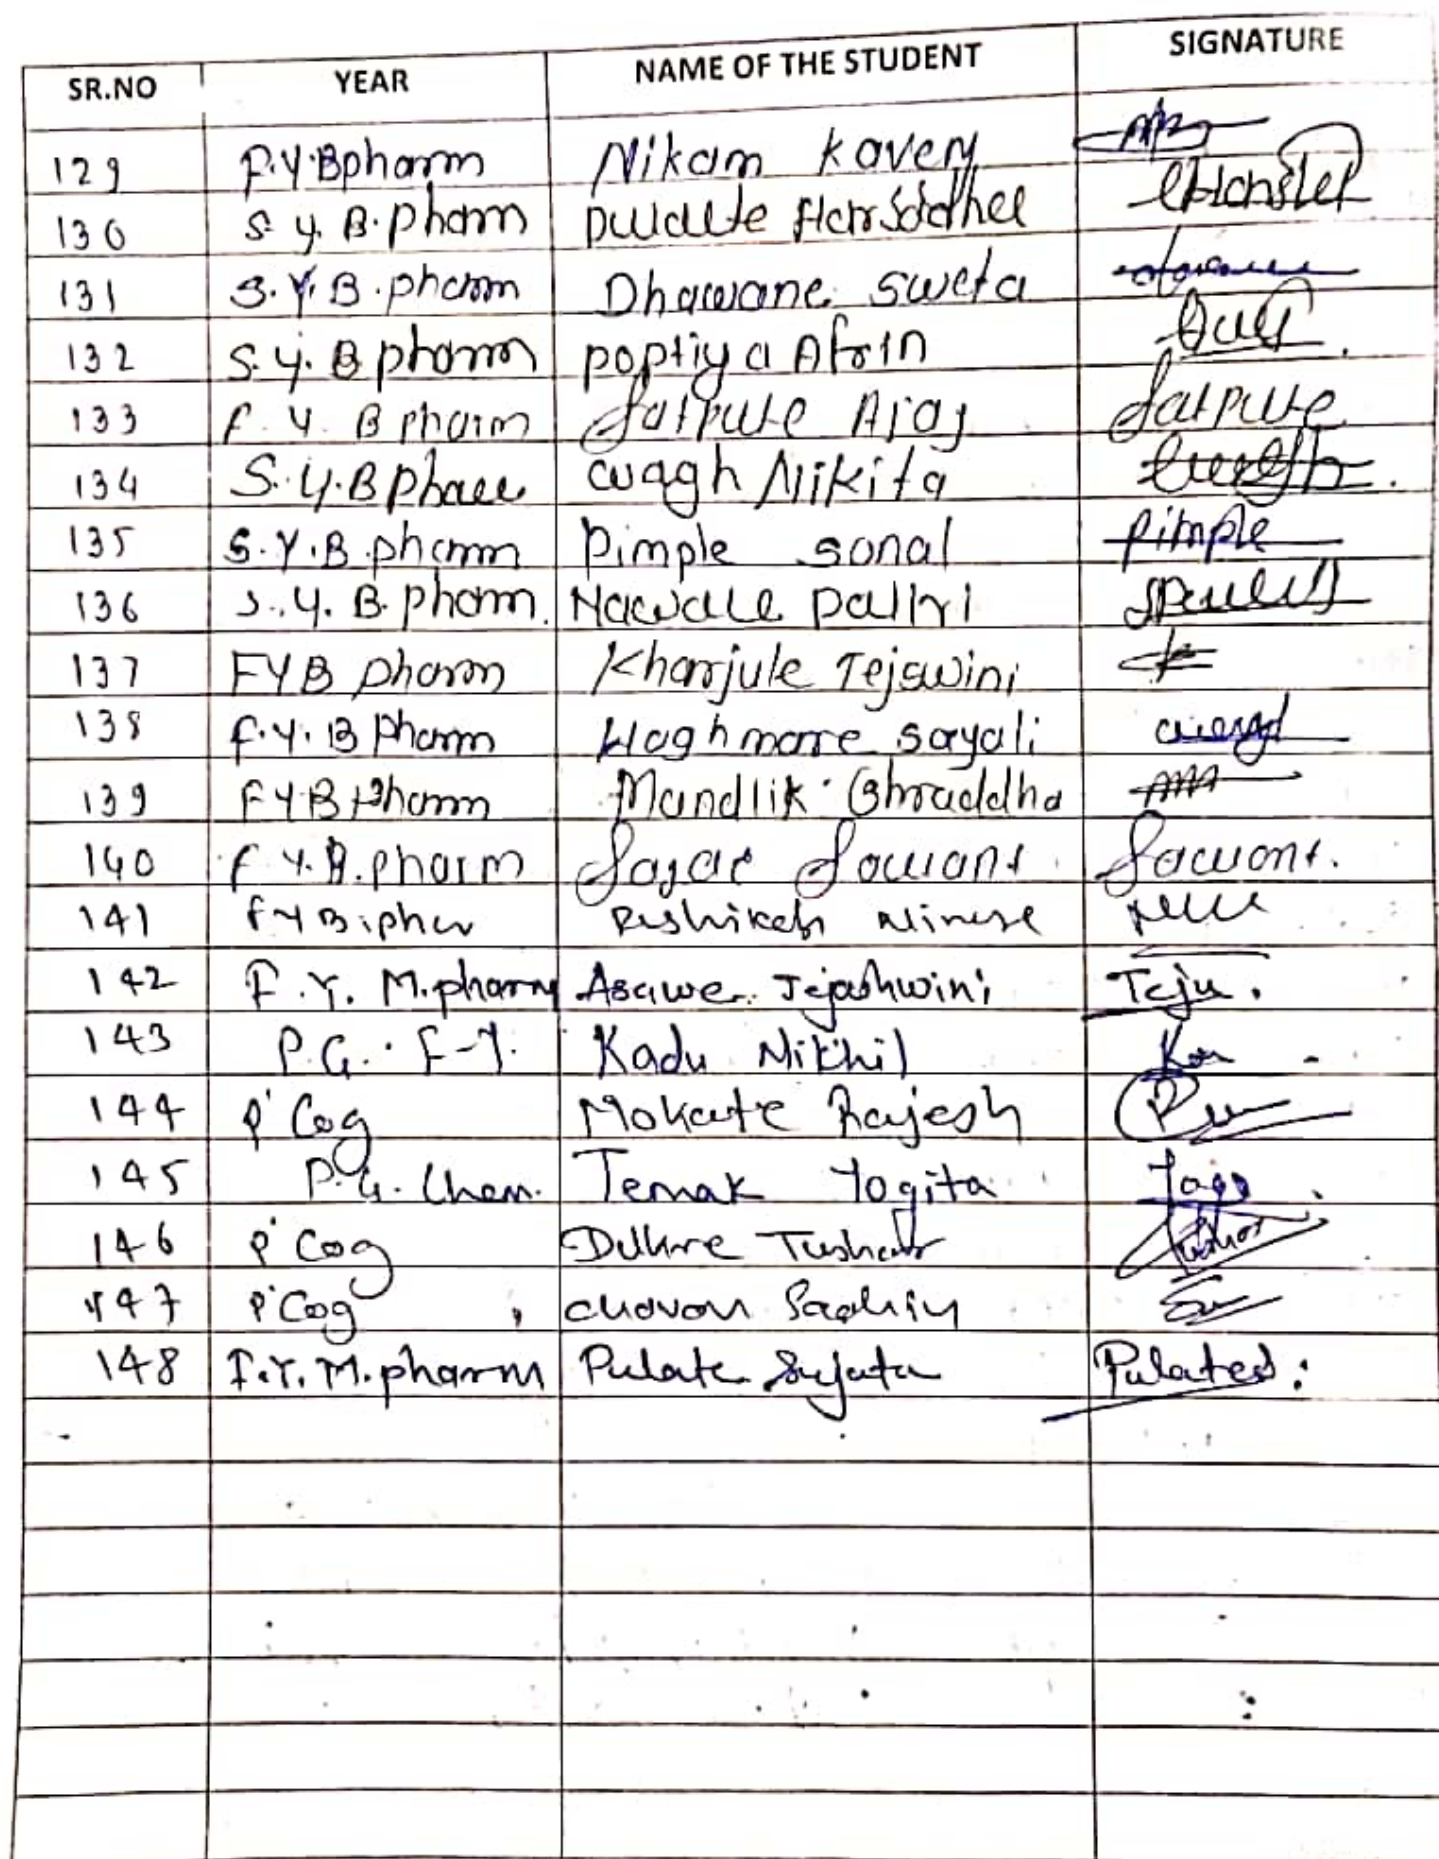 SR.NO YEAR NAME OF THE STUDENT SIGNATURE
129 F.Y.Bpharm Nikam Kavery
130 S.y.B.Pharm
131 S.Y.B.pharm Dhawane sweta
132 S.y.B pharm poptiya Afrin
133 F.Y.B pharm Satpute Ajay Satpute
134 S.y.B wagh Nikita
135 S.Y.B.pharm Pimple sonal Pimple
136 S.y.B.pharm. Nawale
137 FYB pharm Kharjule Tejswini
138 F.Y.B Pharm Waghmare sayali
139 FYB Pharm Mandlik Shraddha
140 F.Y.B.pharm Sagar Sawant Sawant.
141 FYB.phar Rushikesh
142 F.Y. M.pharm Asawe Tejashwini Teju.
143 P.G. F-Y. Kadu Nikhil
144 P'Cog Mokate Rajesh
145 P.G. Chem. Temak Yogita
146 P'Cog Tushar Tushar
147 P'Cog chavan Sachin
148 F.Y.M.pharm Pulate Sujata PulateS.